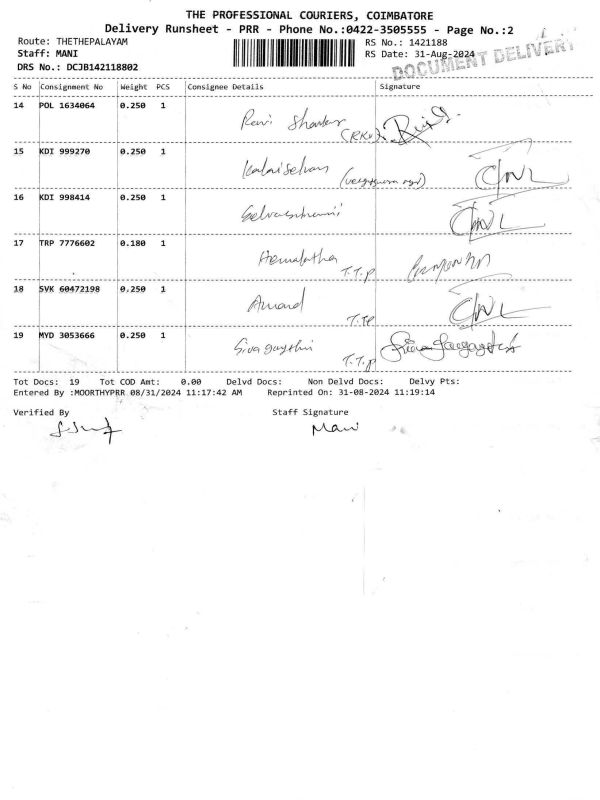 THE PROFESSIONAL COURIERS, COIMBATORE
Delivery Runsheet - PRR - Phone No.:0422-3505555 - Page No.:2
Route: THETHEPALAYAM RS No.: 1421188
Staff: MANI RS Date: 31-Aug-2024
DOCUMENT DELIVERY
DRS No.: DCJB142118802
S No Consignment No Weight PCS Consignee Details Signature
14 POL 1634064 0.250 1
Ravi Shankar (RKV)
15 KDI 999270 0.250 1
Kalaiselvan
16 KDI 998414 0.250 1
Selvasithami
17 TRP 7776602 0.180 1
Hemalatha T.T.P
18 SVK 60472198 0.250 1
Anand T.TP
19 MYD 3053666 0.250 1
Sivagayathri T.T.P
Tot Docs: 19 Tot COD Amt: 0.00 Delvd Docs: Non Delvd Docs: Delvy Pts:
Entered By :MOORTHYPRR 08/31/2024 11:17:42 AM Reprinted On: 31-08-2024 11:19:14
Verified By Staff Signature
Mani